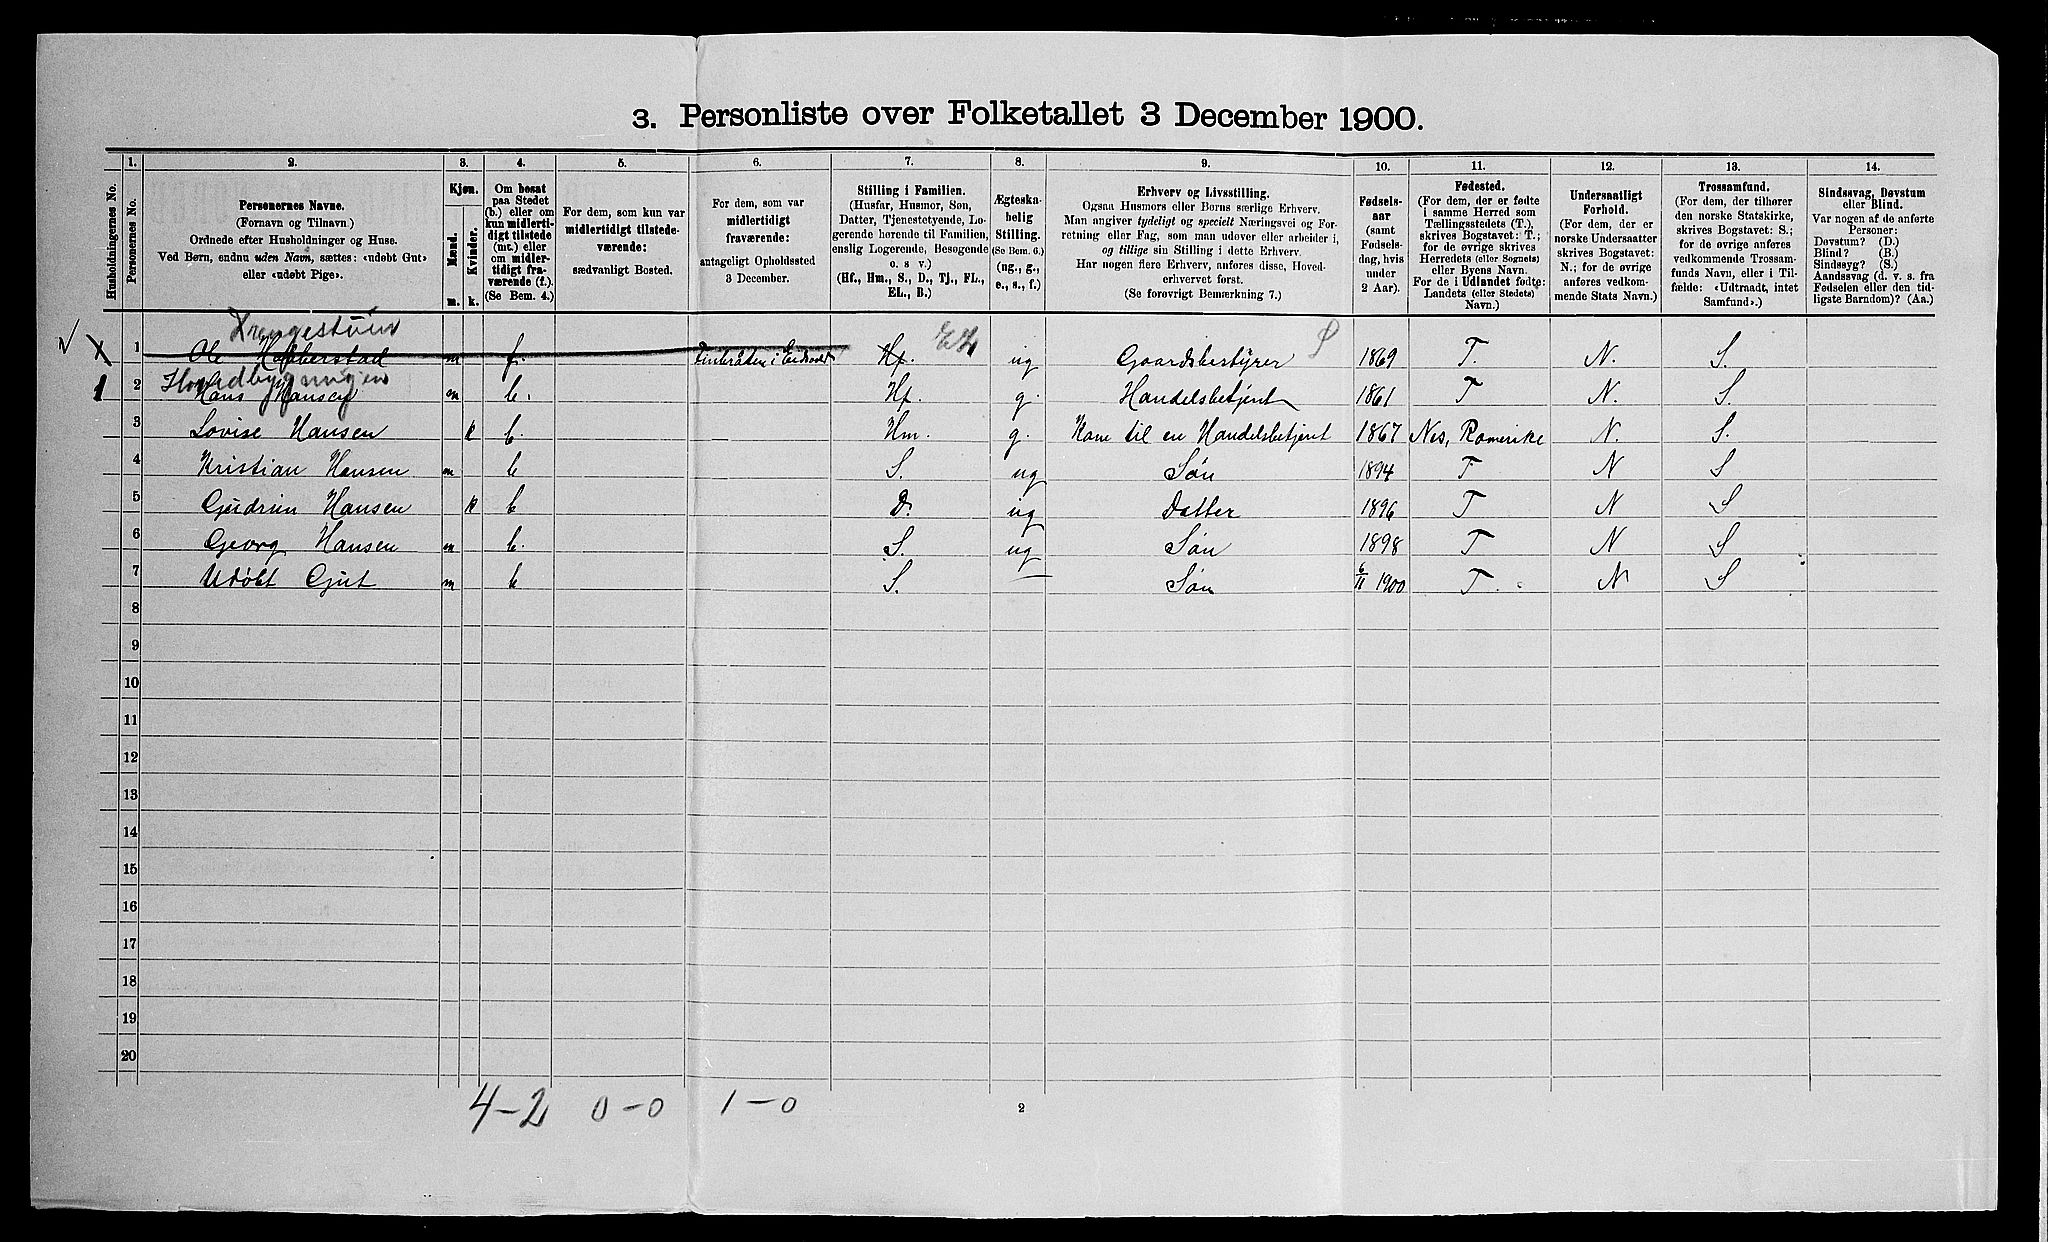 3. Personliste over Folketallet 3 December 1900.
1. 2. 3. 4. 5. 6. 7. 8. 9. 10. 11. 12. 13. 14.
Husholdningernes No.
Personernes No.
Personernes Navne.
(Fornavn og Tilnavn.)
Ordnede efter Husholdninger og Huse.
Ved Børn, endnu uden Navn, sættes: «udøbt Gut»
eller «udøbt Pige».
Kjøn.
Mænd.
Kvinder.
m. k.
Om bosat
paa Stedet
(b.) eller om
kun midlerti-
digt tilstede
(mt.) eller
om midler-
tidigt fra-
værende (f.).
(Se Bem. 4.)
For dem, som kun var
midlertidigt tilstede-
værende:
sædvanligt Bosted.
For dem, som var
midlertidigt
fraværende:
antageligt Opholdssted
3 December.
Stilling i Familien.
(Husfar, Husmor, Søn,
Datter, Tjenestetyende, Lo-
gerende hørende til Familien,
enslig Logerende, Besøgende
o. s v.)
(Hf., Hm., S., D., Tj., FL.,
EL., B.)
Ægteska-
belig
Stilling.
(Se Bem. 6.)
(ug., g.,
e., s., f.)
Erhverv og Livsstilling.
Ogsaa Husmors eller Børns særlige Erhverv.
Man angiver tydeligt og specielt Næringsvei og For-
retning eller Fag, som man udover eller arbeider i,
og tillige sin Stilling i dette Erhverv.
Har nogen flere Erhverv, anføres disse, Hoved-
erhvervet først.
(Se forøvrigt Bemærkning 7.)
Fødsels-
aar
(samt
Fødsels-
dag, hvis
under
2 Aar).
Fødested.
(For dem, der er fødte
i samme Herred som
Tællingsstedets (T.),
skrives Bogstavet: T.;
for de øvrige skrives
Herredets (eller Sognets)
eller Byens Navn.
For de i Udlandet fødte:
Landets (eller Stedets)
Navn.)
Undersaatligt
Forhold.
(For dem, der er
norske Undersaatter
skrives Bogstavet:
N.; for de øvrige
anføres vedkom-
mende Stats Navn.)
Trossamfund.
(For dem, der tilhører
den norske Statskirke,
skrives Bogstavet: S.;
for de øvrige anføres
vedkommende Trossam-
funds Navn, eller i Til-
fælde: «Udtraadt, intet
Samfund».)
Sindssvag, Døvstum
eller Blind.
Var nogen af de anførte
Personer:
Døvstum? (D.)
Blind? (B.)
Sindssyg? (S.)
Aandssvag (d. v. s. fra
Fødselen eller den tid-
ligste Barndom)? (Aa.)
Drengestuen
x 1 Ole m f. i Eidsvold Hf. EL ug Gaardsbestyrer 1869 T. N. S.
Hovedbygningen
1 2 Hans Hansen m b. Hf. g. Handelsbetjent 1861 T N. S.
3 Lovise Hansen k b. Hm. g. Kone til en Handelsbetjent 1867 Nes, Romerike N. S.
4 Kristian Hansen m b S. ug Søn 1894 T N S
5 Gudrun Hansen k b D. ug Datter 1896 T N S
6 Georg Hansen m b. S. ug Søn 1898 T N S
7 Udøbt Gut m b S. — Søn 6/11 1900 T. N S
8
9
10
11
12
13
14
15
16
17
18
19
20
4-2 0-0 1-0
2